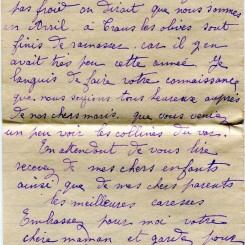 pas froid on dirait que nous sommes
en Avril à Trans les olives sont
finis de ramasser. car il y en
avait très peu cette année. Je
languis de faire votre connaissance
que nous soyions tous heureux auprès
de nos chers maris. que vous veniez
un peu voir les collines du var.
En attendant de vous lire
recevez de mes chers enfants
ainsi que de mes chers parents
les meilleures caresses
Embrassez pour moi votre
chère maman et gardez pour